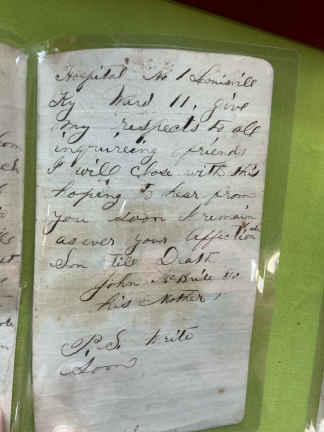 Hospital No 1 Louisvill
Ky Ward 11, give
my respects to all
inquireing friends
I will close with this
hoping to hear from
you soon I remain
as ever your affectionat
Son till Death
John McBride to
his Mother
P.S. write
Soon